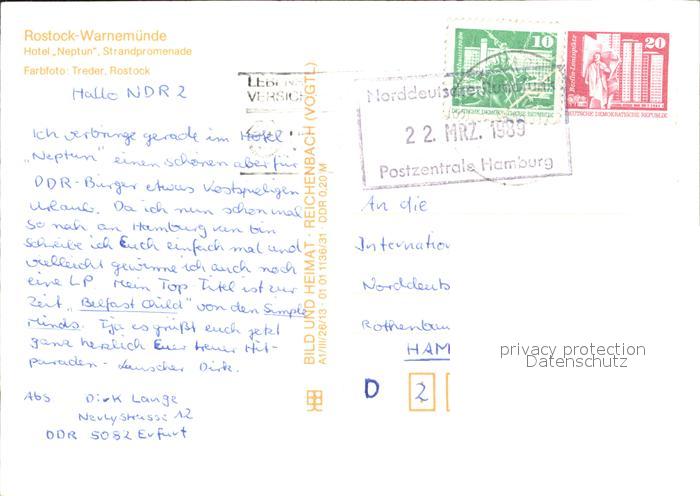 Rostock-Warnemünde
Hotel „Neptun", Strandpromenade
Farbfoto: Treder, Rostock
Hallo NDR 2
Ich verbringe gerade im Hotel
„Neptun" einen schönen aber für
DDR-Bürger etwas kostspieligen
Urlaub. Da ich nun schon mal
so nah an Hamburg ran bin
schreibe ich Euch einfach mal und
vielleicht gewinne ich auch noch
eine LP. Mein Top-Titel ist zur
Zeit „Belfast Child" von den Simple
Minds. Tja es grüßt euch jetzt
ganz herzlich Euer treuer Hit-
paraden-Lauscher Dirk.
Abs Dirk Lange
12
DDR 5082 Erfurt
BILD UND HEIMAT · REICHENBACH (VOGTL)
A1/III/26/13 · 01 01 1136/31 · DDR 0,20 M
10
DEUTSCHE DEMOKRATISCHE REPUBLIK
20
Berlin-Leninplatz
DEUTSCHE DEMOKRATISCHE REPUBLIK
Norddeutscher Rundfunk
22. MRZ. 1989
Postzentrale Hamburg
An die
Internation
Norddeuts
Rothenbau
HAM
D 2
privacy protection
Datenschutz